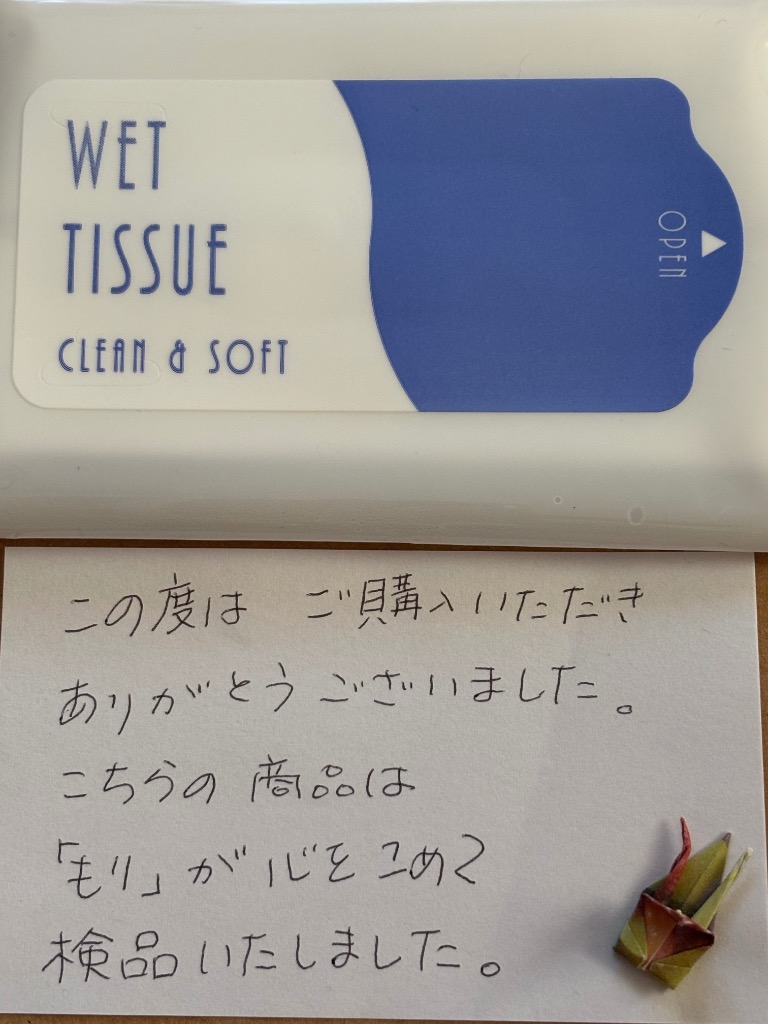 WET
TISSUE
CLEAN & SOFT
OPEN
この度は ご購入いただき
ありがとうございました。
こちらの商品は
「もり」が心をこめて
検品いたしました。